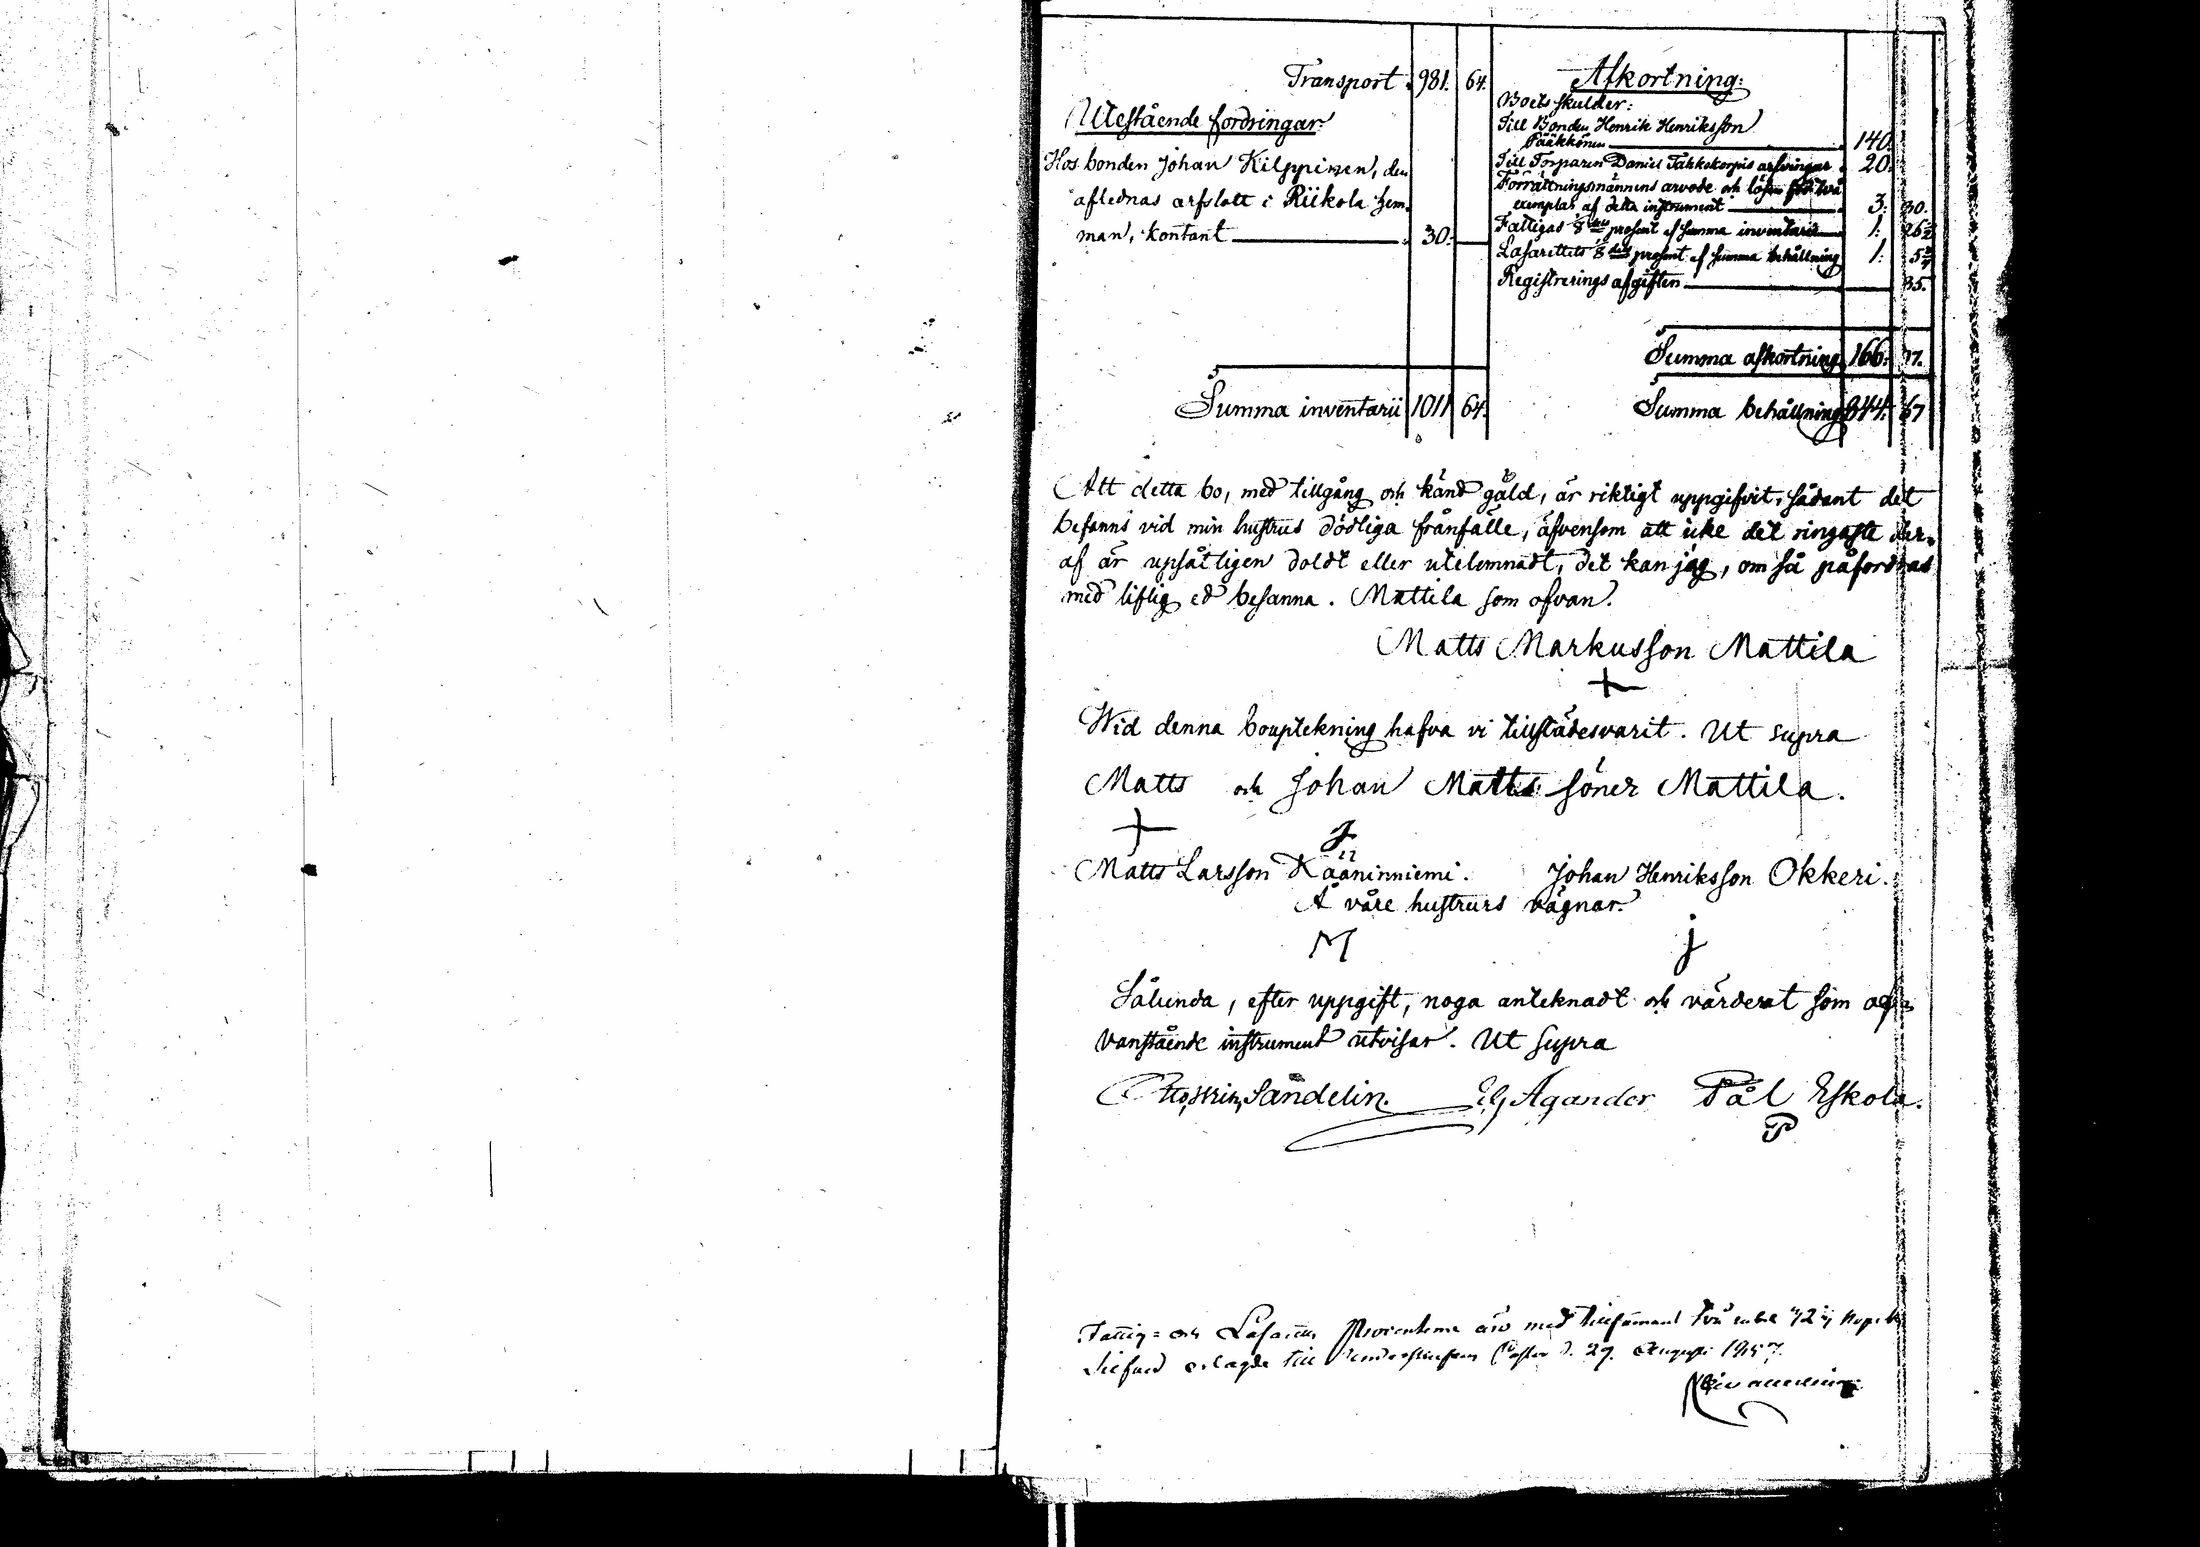 Transport 981. 64.
Utestående fordringar
Hos bonden Johan Kilppinen, den
aflednas arfslott i Riikola hem-
man, kontant 30.
Summa inventarii 1011 64.
Afkortning:
Boets skulder:
Till Bonden Henrik Henriksson
Pääkkönen 140.
Till Torparen Daniel Takkakorpis arfvingar 20.
Förrättningsmännens arvode och lösen för två
exemplar af detta instrument 3. 30.
Fattigas 8dels prosent af summa inventarii 1. 26 1/2
Lasarettets 8dels prosent af summa behållning 1. 5
Registrerings afgiften 35.
Summa afkortning 166. 97.
Summa behållning 844. 67
Att detta bo, med tillgång och känd gäld, är riktigt uppgifvit, sådant det
befanns vid min hustrus dödliga frånfälle, äfvensom att icke det ringaste der-
af är upsåtligen doldt eller utelemnadt, det kan jag, om så påfordras
med liflig ed besanna. Mattila som ofvan.
Matts Markusson Mattila
Wid denna bouptekning hafva vi tillstädesvarit. Ut supra
Matts och Johan Matts söner Mattila.
J
Matts Larsson Kääninniemi. Johan Henriksson Okkeri.
Å våre hustrurs vägnar.
M j
Sålunda, efter uppgift, noga anteknadt och värderat som of-
vanstående instrument utvisar. Ut supra
Sandelin. Agander Pål Eskola.
P
Fattig- och Lasaretts Procenterne äro med tillsamans två rubel
Silfver erlagde till d. 29. Augusti 1857.